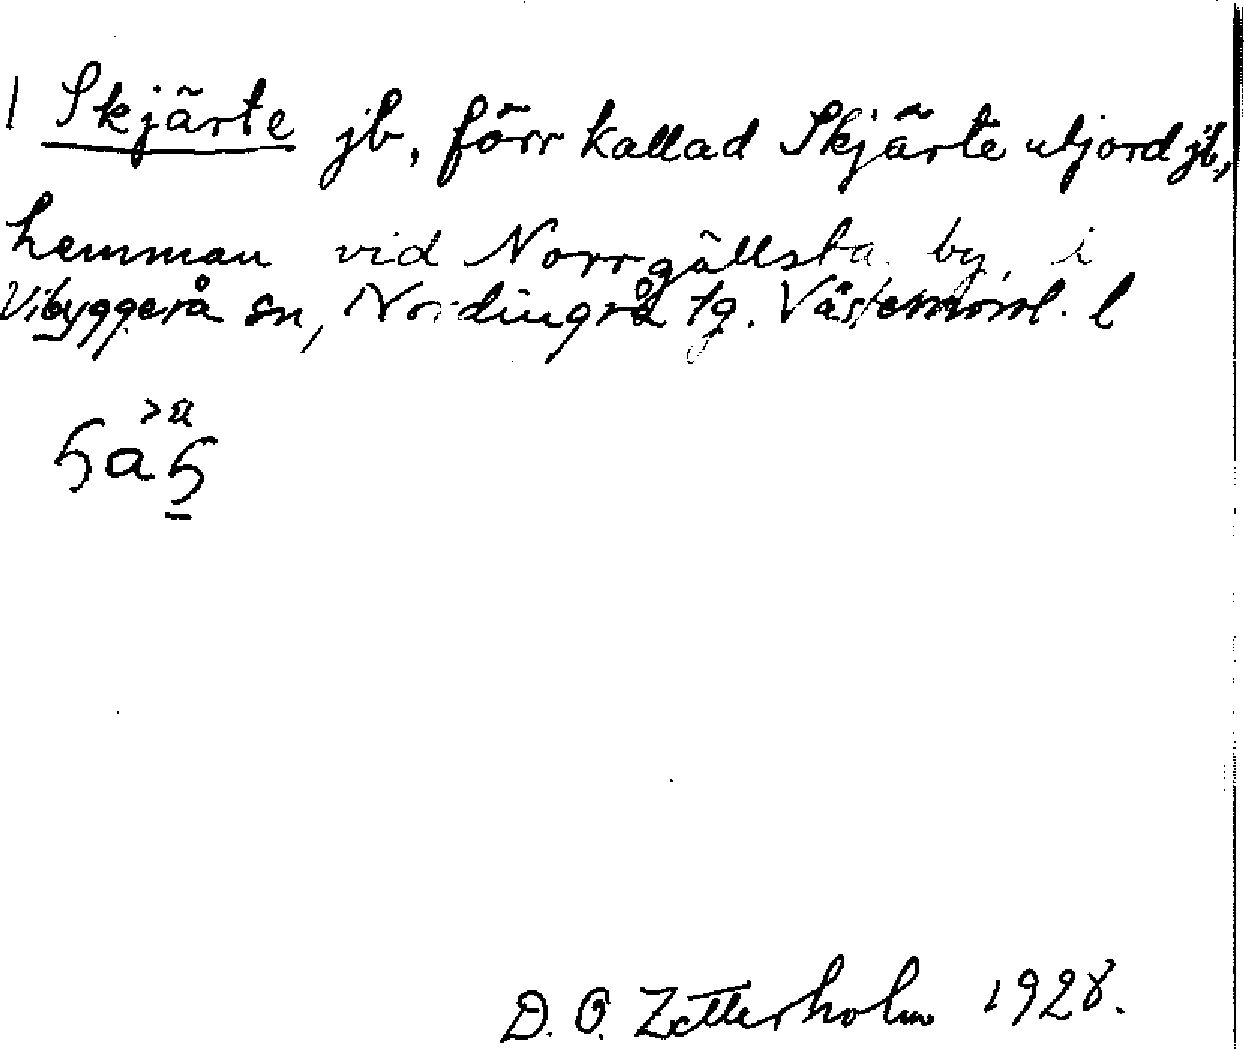 1 Skjärte jb, förr kallad Skjärte utjord jb,
hemman vid Norrgällsta by, i
Vibyggerå sn, Nordingrå tg. Västernorrl. l
D. O. Zetterholm 1928.